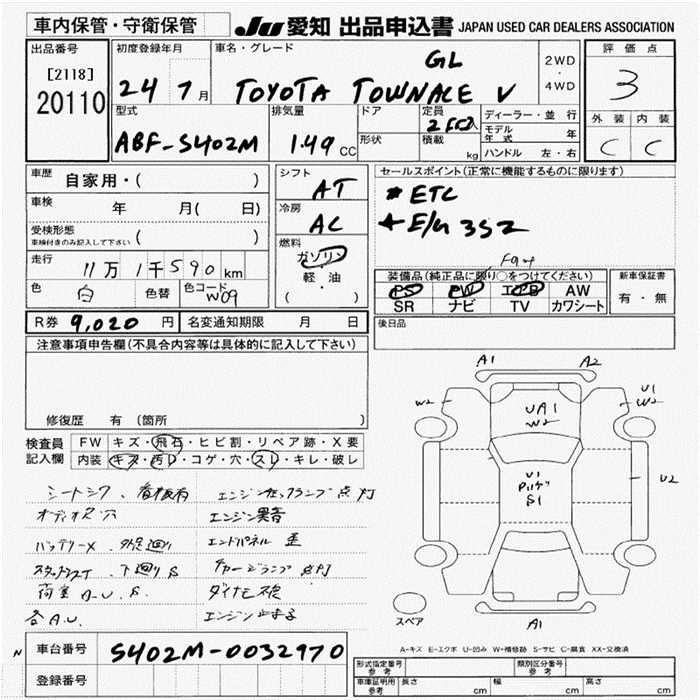 車内保管・守衛保管
JU 愛知 出品申込書 JAPAN USED CAR DEALERS ASSOCIATION
出品番号
[2118]
20110
初度登録年月
24 7月
車名・グレード
GL
TOYOTA TOWNACE V
2WD
・
4WD
評価点
3
外装 内装
C C
型式
ABF-S402M
排気量
1.49 CC
ドア
形状
定員
積載
kg
ディーラー・並行
モデル年式 年
ハンドル 左・右
車歴 自家用・( )
車検 年 月(日)
受検形態
車検付きのみ記入して下さい ( )
走行 11万1千590km
色 白 色替 色コード W09
シフト
AT
冷房
AC
燃料
ガソリン
軽油
( )
セールスポイント(正常に機能するものに限ります)
*ETC
E/G 352
装備品(純正品に限り○をつけてください)
PS PW エアB AW
SR ナビ TV カワシート
新車保証書
有・無
R券 9,020円 名変通知期限 月 日
後日品
注意事項申告欄(不具合内容等は具体的に記入して下さい)
修復歴 有(箇所 )
検査員
記入欄
FW キズ・飛石・ヒビ割・リペア跡・X要
内装 キズ・汚レ・コゲ・穴・スレ・キレ・破レ
エンジンチェックランプ点灯
オーディオ穴 エンジン異音
バッテリーX エンドパネル歪
下廻りS チャージランプ点灯
荷室A.U.S.
各A.U.
A1 A2
W2 U1
W2
UA1
W2
U1
S1
U2
A1
スペア
A-キズ E-エクボ U-凹み W-補修跡 S-サビ C-腐食 XX-交換済
N
車台番号 S402M-0032970
登録番号
形式指定番号
参考
類別区分番号
参考
車庫証明用
参考
長さ cm 幅 cm 高さ cm